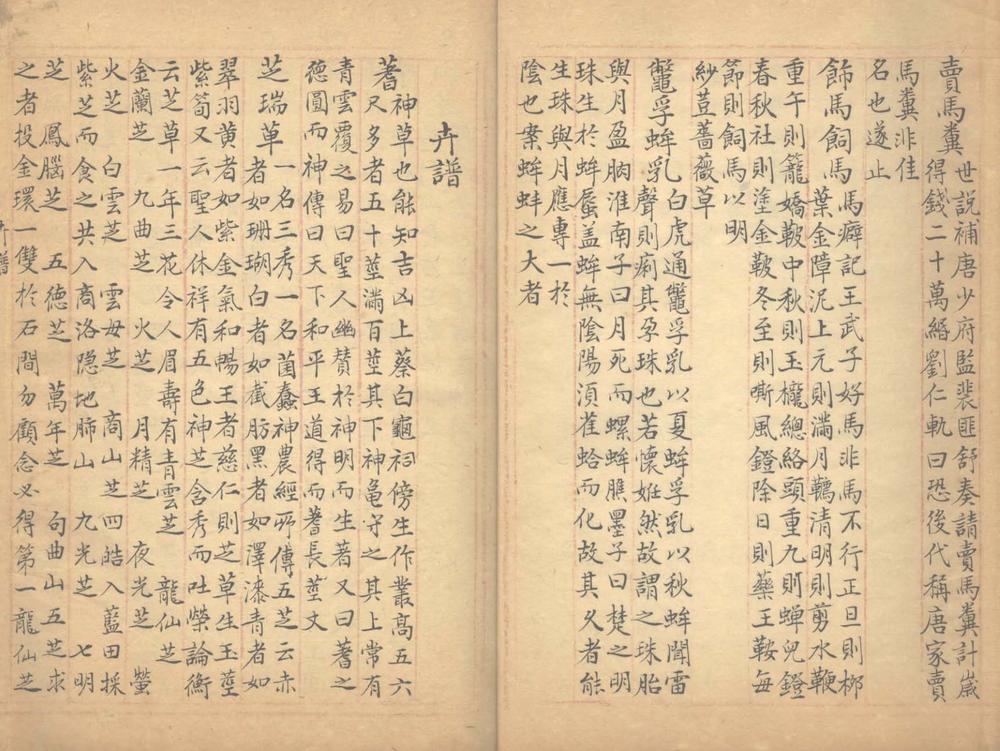 賣馬糞
世說補唐少府監裴匪舒奏請賣馬糞計歲
得錢二十萬緡劉仁軌曰恐後代稱唐家賣
馬糞非佳
名也遂止
飾馬飼馬
馬癖記王武子好馬非馬不行正旦則柳
葉金障泥上元則滿月韉清明則剪水鞭
重午則籠嬌鞁中秋則玉櫳總絡頭重九則蟬兒鐙
春秋社則塗金鞁冬至則嘶風鐙除日則藥王鞍每
節則飼馬以明
紗荳薔薇草
鼈孚蜯乳
白虎通鼈孚乳以夏蜯孚乳以秋蜯聞雷
聲則痢其孕珠也若懷姙然故謂之珠胎
與月盈朒淮南子曰月死而螺蜯膲墨子曰楚之明
珠生於蜯蜃盖蜯無陰陽須雀蛤而化故其久者能
生珠與月應專一於
陰也案蜯蚌之大者
卉譜
蓍
神草也能知吉凶上蔡白龜祠傍生作叢高五六
尺多者五十莖滿百莖其下神龜守之其上常有
青雲覆之易曰聖人幽贊於神明而生蓍又曰蓍之
德圓而神傳曰天下和平王道得而蓍長莖丈
芝
瑞草
一名三秀一名菌蠢神農經所傳五芝云赤
者如珊瑚白者如截肪黑者如澤漆青者如
翠羽黄者如紫金氣和暢王者慈仁則芝草生玉莖
紫筍又云聖人休祥有五色神芝含秀而吐榮論衡
云芝草一年三花令人眉壽有青雲芝 龍仙芝
金蘭芝 九曲芝 火芝 月精芝 夜光芝 螢
火芝 白雲芝 雲母芝 商山芝四皓入藍田採
紫芝而食之共入商洛隐地肺山 九光芝 七明
芝 鳳腦芝 五德芝 萬年芝 句曲山五芝求
之者投金環一雙於石間勿顧念必得第一龍仙芝
卉譜